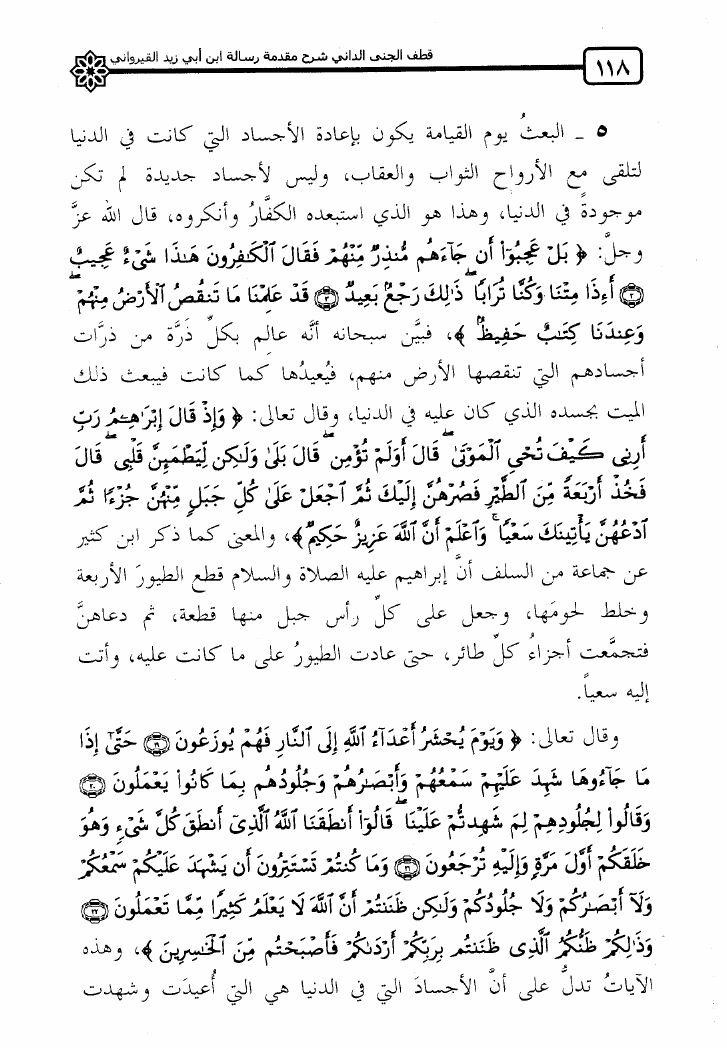 قطف الجنى الداني شرح مقدمة رسالة ابن أبي زيد القيرواني
١١٨
٥ ـ البعثُ يوم القيامة يكون بإعادة الأجساد التي كانت في الدنيا
لتلقى مع الأرواح الثواب والعقاب، وليس لأجساد جديدة لم تكن
موجودةً في الدنيا، وهذا هو الذي استبعده الكفَّارُ وأنكروه، قال الله عزَّ
وجلَّ: ﴿ بَلْ عَجِبُوٓا۟ أَن جَآءَهُم مُّنذِرٌ مِّنْهُمْ فَقَالَ ٱلْكَـٰفِرُونَ هَـٰذَا شَىْءٌ عَجِيبٌ
۝٢ أَءِذَا مِتْنَا وَكُنَّا تُرَابًا ۖ ذَٰلِكَ رَجْعٌۢ بَعِيدٌ ۝٣ قَدْ عَلِمْنَا مَا تَنقُصُ ٱلْأَرْضُ مِنْهُمْ ۖ
وَعِندَنَا كِتَـٰبٌ حَفِيظٌۢ ﴾، فبيَّن سبحانه أنَّه عالم بكلِّ ذَرَّة من ذرَّات
أجسادهم التي تنقصها الأرض منهم، فيُعيدُها كما كانت فيبعث ذلك
الميت بجسده الذي كان عليه في الدنيا، وقال تعالى: ﴿ وَإِذْ قَالَ إِبْرَٰهِـۧمُ رَبِّ
أَرِنِى كَيْفَ تُحْىِ ٱلْمَوْتَىٰ ۖ قَالَ أَوَلَمْ تُؤْمِن ۖ قَالَ بَلَىٰ وَلَـٰكِن لِّيَطْمَئِنَّ قَلْبِى ۖ قَالَ
فَخُذْ أَرْبَعَةً مِّنَ ٱلطَّيْرِ فَصُرْهُنَّ إِلَيْكَ ثُمَّ ٱجْعَلْ عَلَىٰ كُلِّ جَبَلٍ مِّنْهُنَّ جُزْءًا ثُمَّ
ٱدْعُهُنَّ يَأْتِينَكَ سَعْيًا ۚ وَٱعْلَمْ أَنَّ ٱللَّهَ عَزِيزٌ حَكِيمٌ﴾، والمعنى كما ذكر ابن كثير
عن جماعة من السلف أنَّ إبراهيم عليه الصلاة والسلام قطع الطيورَ الأربعة
وخلط لحومَها، وجعل على كلِّ رأس جبل منها قطعة، ثم دعاهنَّ
فتجمَّعت أجزاءُ كلِّ طائر، حتى عادت الطيورُ على ما كانت عليه، وأتت
إليه سعياً.
وقال تعالى: ﴿ وَيَوْمَ يُحْشَرُ أَعْدَآءُ ٱللَّهِ إِلَى ٱلنَّارِ فَهُمْ يُوزَعُونَ ۝١٩ حَتَّىٰٓ إِذَا
مَا جَآءُوهَا شَهِدَ عَلَيْهِمْ سَمْعُهُمْ وَأَبْصَـٰرُهُمْ وَجُلُودُهُم بِمَا كَانُوا۟ يَعْمَلُونَ ۝٢٠
وَقَالُوا۟ لِجُلُودِهِمْ لِمَ شَهِدتُّمْ عَلَيْنَا ۖ قَالُوٓا۟ أَنطَقَنَا ٱللَّهُ ٱلَّذِىٓ أَنطَقَ كُلَّ شَىْءٍ وَهُوَ
خَلَقَكُمْ أَوَّلَ مَرَّةٍ وَإِلَيْهِ تُرْجَعُونَ ۝٢١ وَمَا كُنتُمْ تَسْتَتِرُونَ أَن يَشْهَدَ عَلَيْكُمْ سَمْعُكُمْ
وَلَآ أَبْصَـٰرُكُمْ وَلَا جُلُودُكُمْ وَلَـٰكِن ظَنَنتُمْ أَنَّ ٱللَّهَ لَا يَعْلَمُ كَثِيرًا مِّمَّا تَعْمَلُونَ ۝٢٢
وَذَٰلِكُمْ ظَنُّكُمُ ٱلَّذِى ظَنَنتُم بِرَبِّكُمْ أَرْدَىٰكُمْ فَأَصْبَحْتُم مِّنَ ٱلْخَـٰسِرِينَ ﴾، وهذه
الآياتُ تدلُّ على أنَّ الأجسادَ التي في الدنيا هي التي أُعيدَت وشهدت